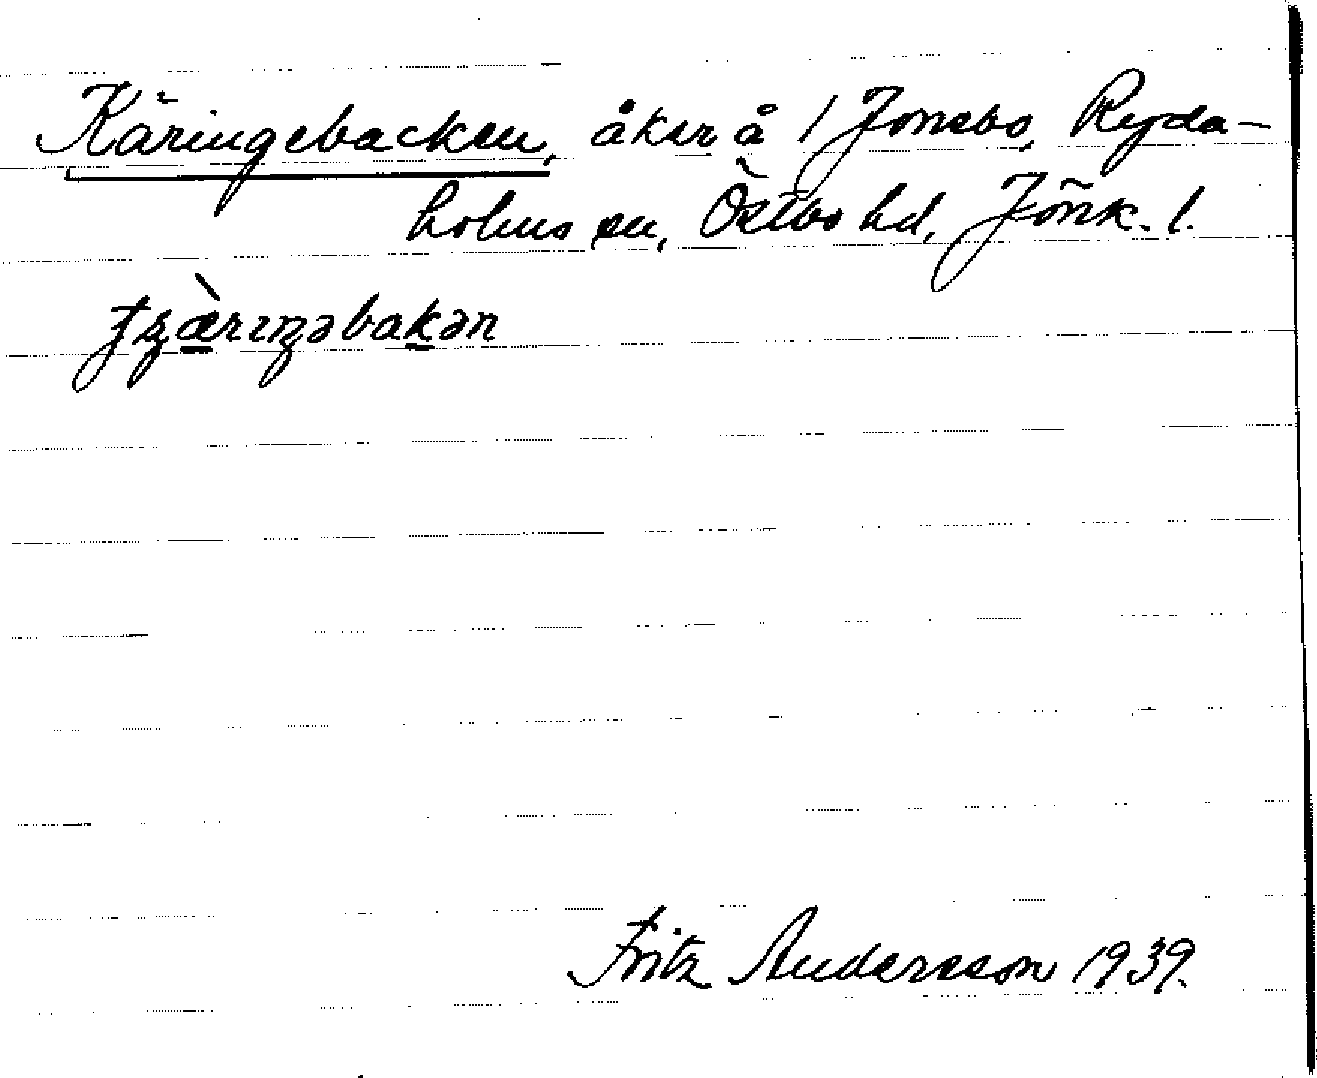 Käringebacken, åker å 1 Jonsbo, Ryda-
holms sn, Östbo hd, Jönk. l.
ꞙʒæ̀rıŋəbakən
Fritz Andersson 1939.